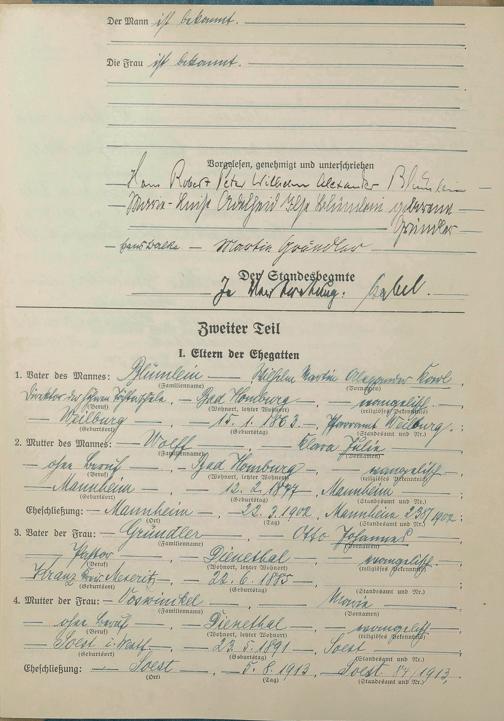 Der Mann ist bekannt.
Die Frau ist bekannt.
Vorgelesen, genehmigt und unterschrieben
Hans Robert Peter Wilhelm Alexander Blümlein
geborene
Gründler
Martin Gründler
Der Standesbeamte
In Vertretung:
Zweiter Teil
I. Eltern der Ehegatten
1. Vater des Mannes: Blümlein — Wilhelm Martin Alexander Karl,
(Familienname) (Vornamen)
Direktor — Bad Homburg — evangelisch
(Beruf) (Wohnort, letzter Wohnort) (religiöses Bekenntnis)
— Weilburg — 15. 1. 1863. Pfarramt Weilburg.
(Geburtsort) (Geburtstag) (Standesamt und Nr.)
2. Mutter des Mannes: — Wolff — Klara Julie
(Familienname) (Vornamen)
— ohne Beruf — Bad Homburg — evangelisch
(Beruf) (Wohnort, letzter Wohnort) (religiöses Bekenntnis)
— Mannheim — 1877, Mannheim —
(Geburtsort) (Geburtstag) (Standesamt und Nr.)
Eheschließung: — Mannheim — 22. 3. 1902, Mannheim /1902.
(Ort) (Tag) (Standesamt und Nr.)
3. Vater der Frau: — Gründler — Otto Johannes
(Familienname) (Vornamen)
— Pastor — Dienethal — evangelisch
(Beruf) (Wohnort, letzter Wohnort) (religiöses Bekenntnis)
Meseritz — 22. 6. 1885
(Geburtsort) (Geburtstag) (Standesamt und Nr.)
4. Mutter der Frau: Voswinkel — Maria
(Familienname) (Vornamen)
— ohne Beruf — Dienethal — evangelisch
(Beruf) (Wohnort, letzter Wohnort) (religiöses Bekenntnis)
— Soest i. Westf. — 1891 — Soest —
(Geburtsort) (Geburtstag) (Standesamt und Nr.)
Eheschließung: — Soest — 5. 8. 1913, Soest 84/1913.
(Ort) (Tag) (Standesamt und Nr.)